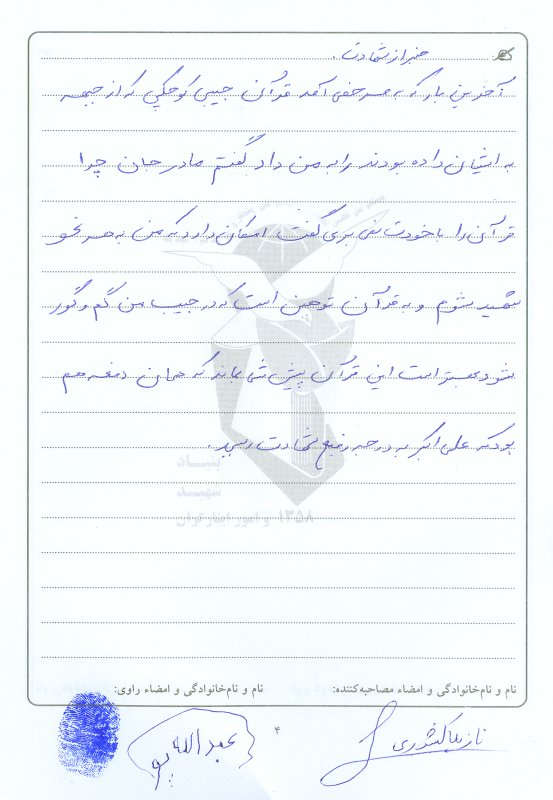 خبر از شهادت.
آخرین بار که به مرخصی آمد قرآن جیبی کوچکی که از جبهه
به ایشان داده بودند را به من داد گفتم مادر جان چرا
قرآن را با خودت نمی بری گفت امکان دارد که من به هر نحو
شهید شوم و به قرآن توهین است که در جیب من گم و گور
شود بهتر است این قرآن پیش شما بماند که همان دفعه هم
بود که علی اکبر به درجه رفیع شهادت رسید.
بنیاد
شهید
و امور ایثارگران
۱۳۵۸
نام و نام‌خانوادگی و امضاء مصاحبه‌کننده:
نام و نام‌خانوادگی و امضاء راوی:
۴
عبدالله پو